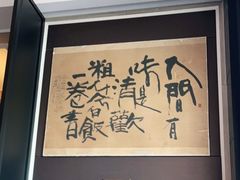 人間有
味是
清歡
粗茶白飯
一卷書